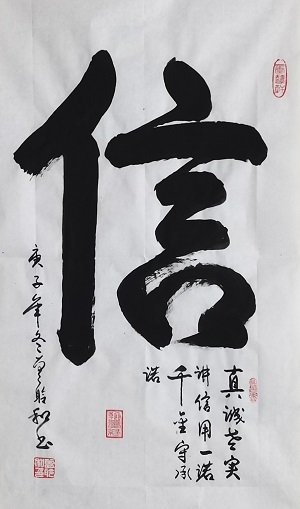 信
真诚老实
讲信用一诺
千金守承
诺
庚子年冬月贻和书